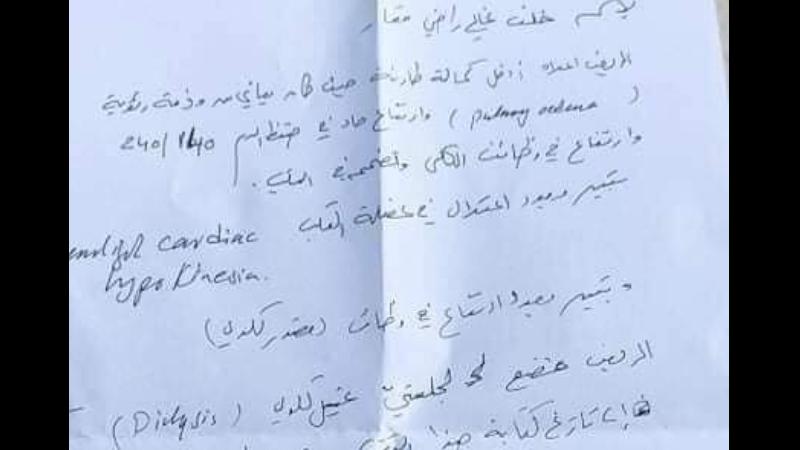 الاسم خلف غالي راضي
المريض اعلاه ادخل كحالة طارئة حيث كان يعاني من وذمة رئوية
(pulmonary edema) وارتفاع حاد في ضغط الدم 240/140
وارتفاع في وظائف الكلى وتضخم في القلب.
تبين وجود اعتلال في عضلة القلب cardiac
hypokinesia.
و تبين وجود ارتفاع في وظائف (كلوي)
المريض خضع لجلستي غسيل كلوي (Dialysis)
تاريخ كتابة هذا